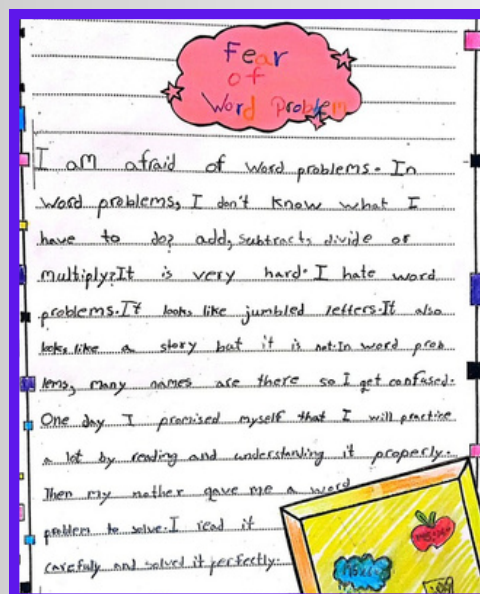 Fear
of
Word Problem
I am afraid of word problems. In
word problems, I don't know what I
have to do? add, subtract, divide or
multiply? It is very hard. I hate word
problems. It looks like jumbled letters. It also
looks like a story but it is not. In word prob
lems, many names are there so I get confused.
One day I promised myself that I will practice
a lot by reading and understanding it properly.
Then my mother gave me a word
problem to solve. I read it
carefuly and solved it perfectly.